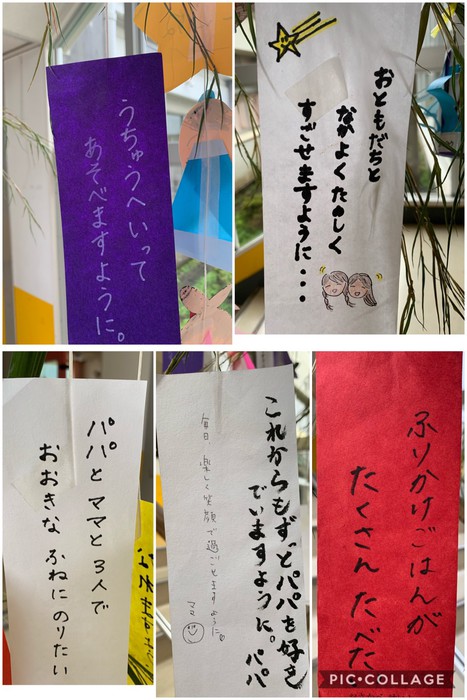 うちゅうへ いって
あそべますように。
おともだちと
なかよく たのしく
すごせますように・・・
パパと ママと 3人で
おおきな ふねに のりたい
これからもずっとパパを好き
でいますように。 パパ
毎日、楽しく笑顔で過ごせますように。
ママ
ふりかけごはんが
たくさん たべた
PIC•COLLAGE